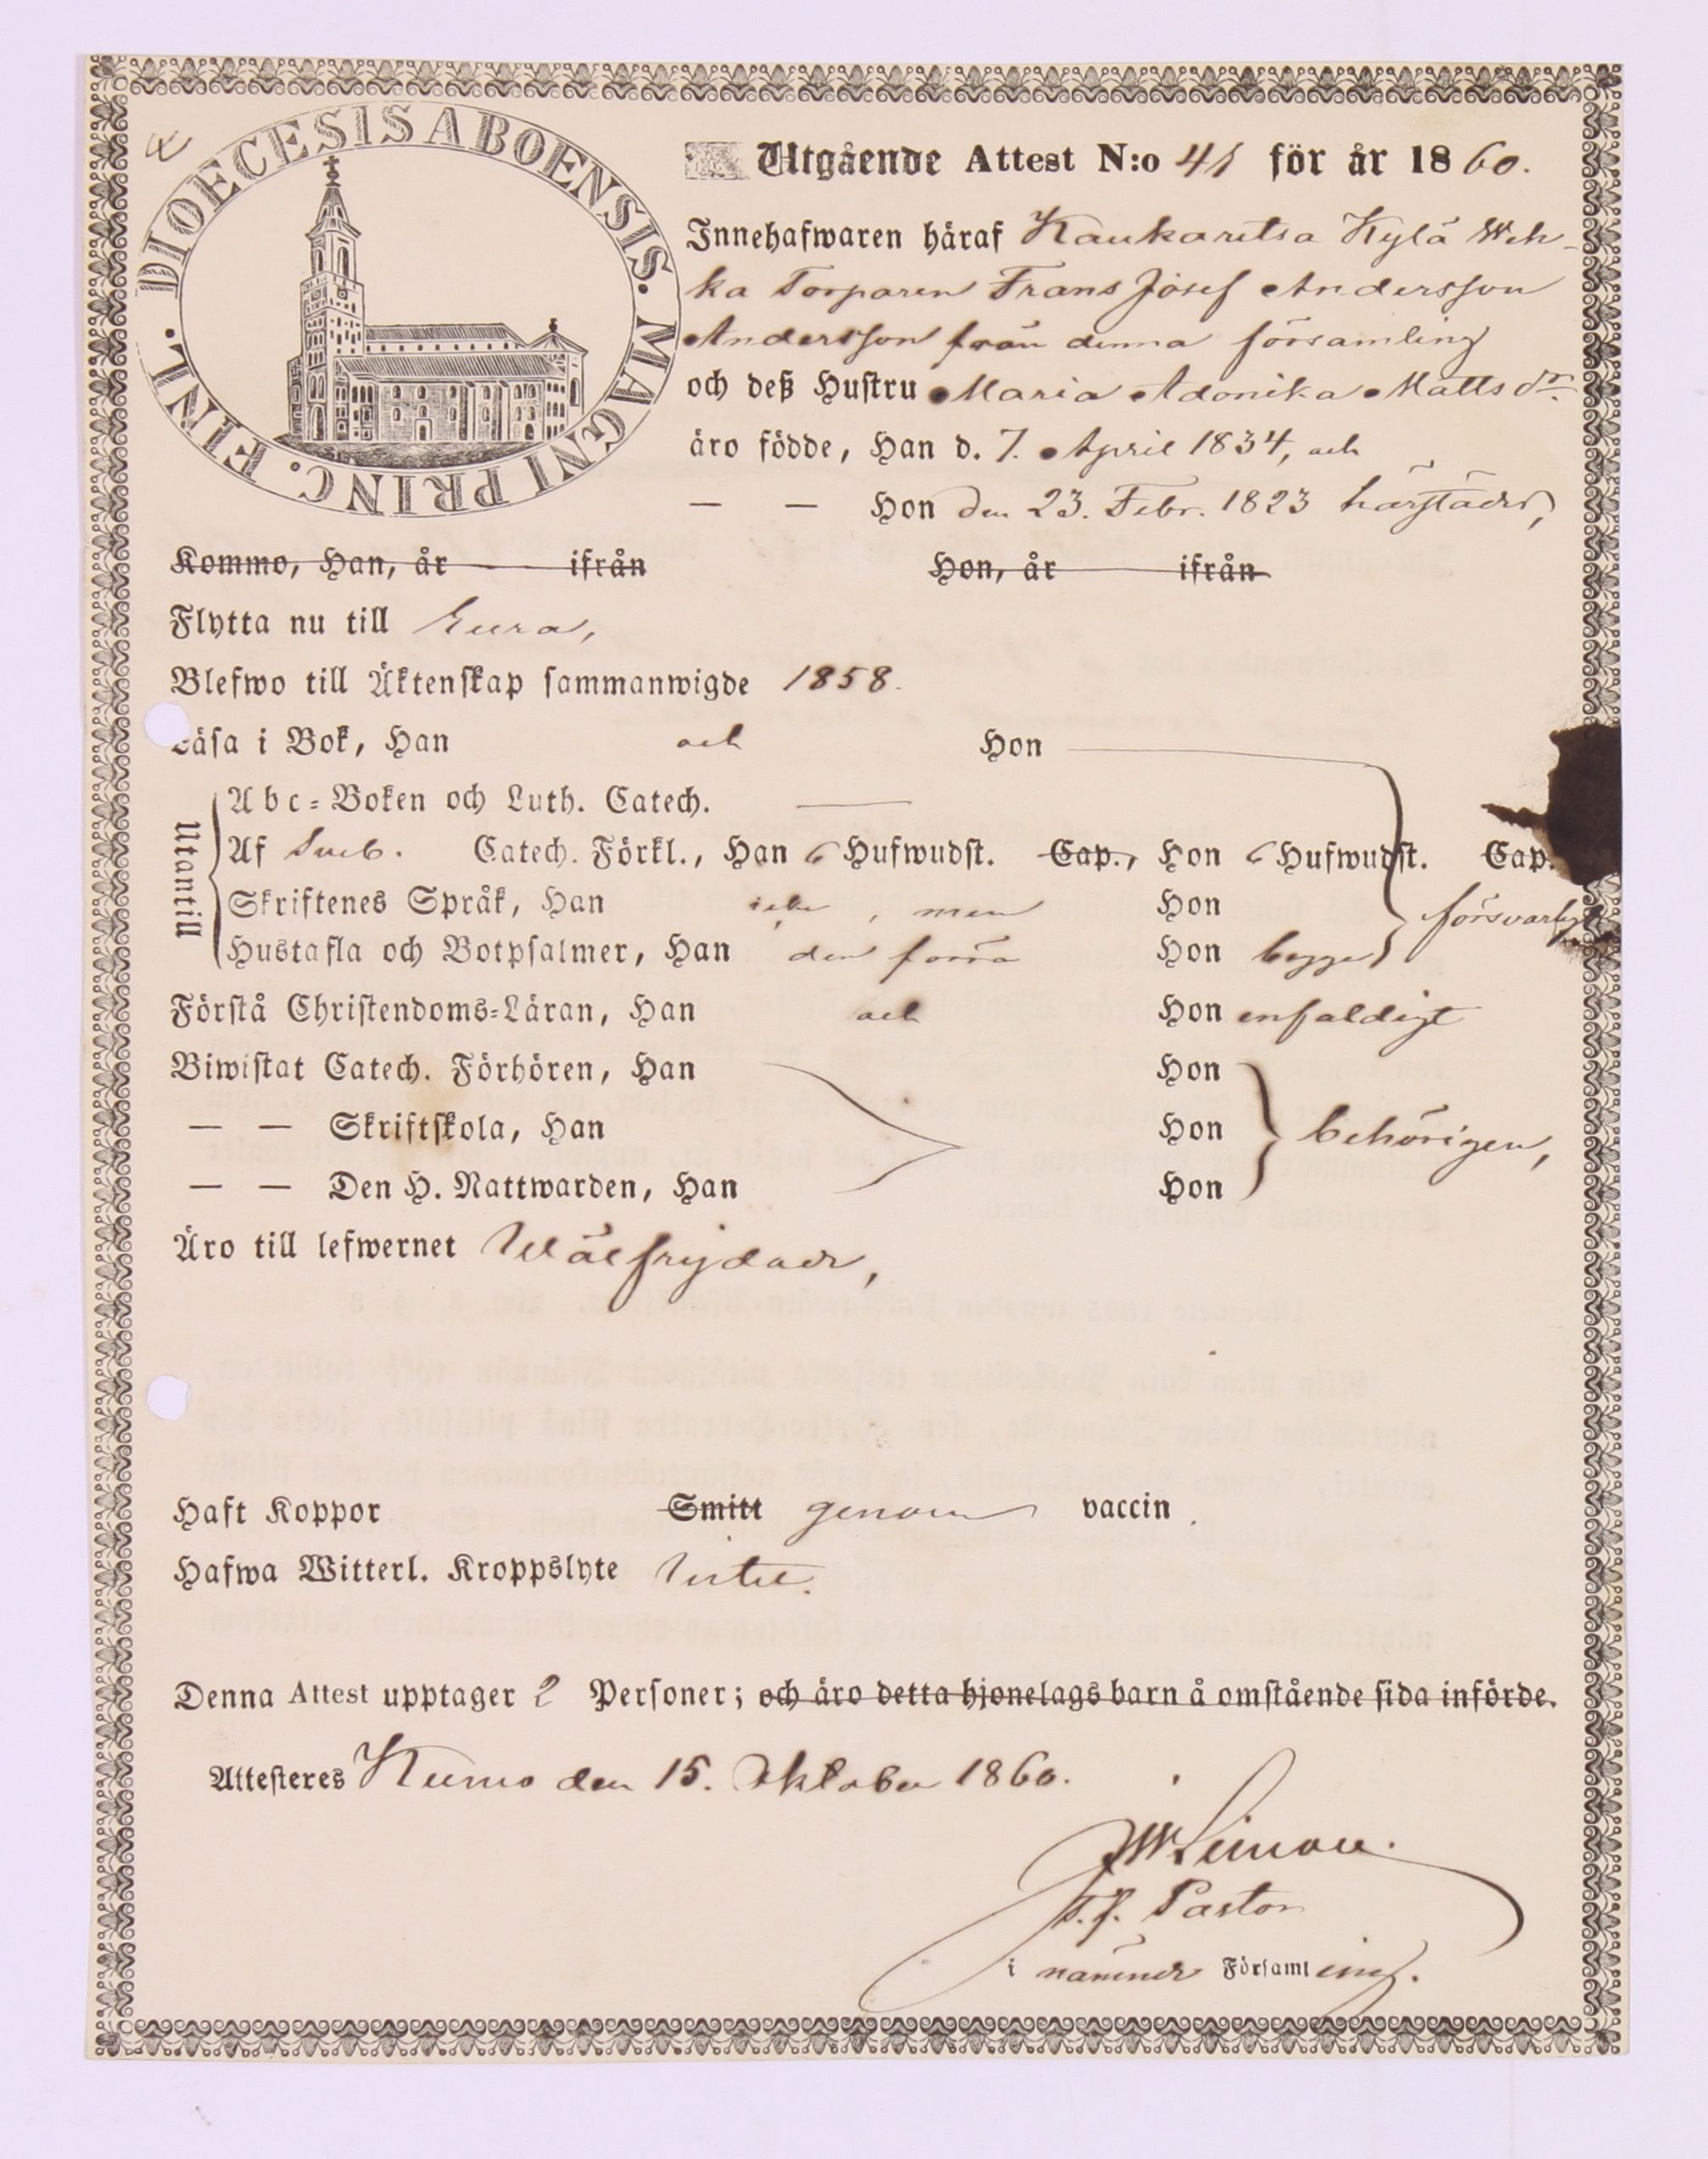 DIOECESIS ABOENSIS. MAGNI PRINC. FINL.
Utgående Attest N:o 41 för år 1860.
Innehafwaren häraf Kaukaritsa Kylä Weh-
ka Torparen Frans Josef Andersson
Andersson från denna församling
och deß Hustru Maria Adonika Matts dr.
äro födde, Han d. 7. April 1834, och
— — Hon den 23. Febr. 1823 härstädes,
Kommo, Han, år ifrån Hon, år ifrån
Flytta nu till Eura,
Blefwo till Äktenskap sammanwigde 1858.
Läsa i Bok, Han och Hon
Utantill
Abc-Boken och Luth. Catech. —
Af Sveb. Catech. Förkl., Han 6 Hufwudst. Cap., Hon 6 Hufwudst. Cap.
Skriftenes Språk, Han icke, men Hon försvarligt
Hustafla och Botpsalmer, Han den förra Hon begge
Förstå Christendoms-Läran, Han och Hon enfaldigt
Biwistat Catech. Förhören, Han Hon
— — Skriftskola, Han Hon behörigen,
— — Den H. Nattwarden, Han Hon
Äro till lefwernet Wälfrejdade,
Haft Koppor Smitt genom vaccin.
Hafwa Witterl. Kroppslyte Intet.
Denna Attest upptager 2 Personer; och äro detta hjonelags barn å omstående sida införde.
Attesteres Kumo den 15. Oktober 1860.
T.f. Pastor
i nämnde Församling.